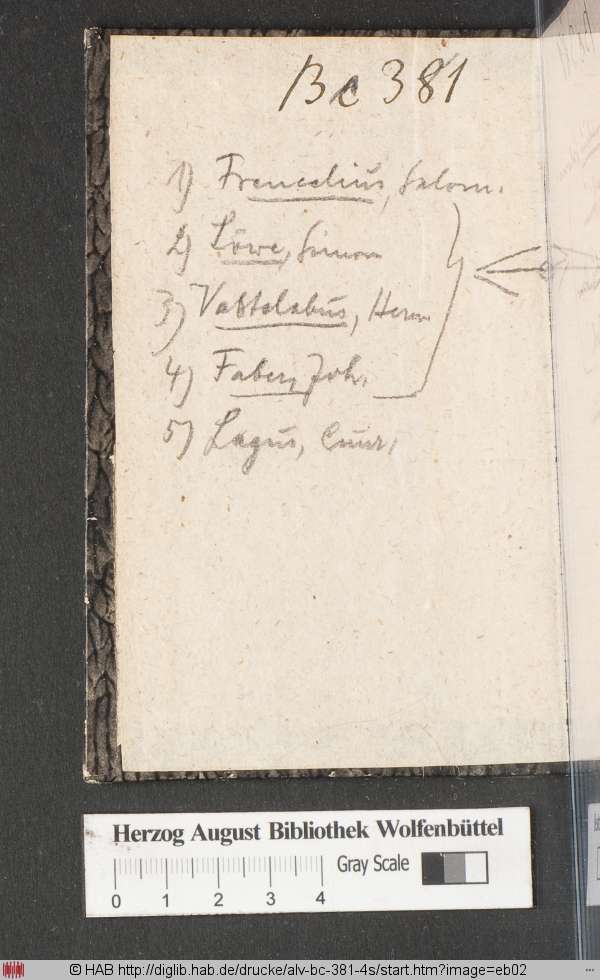 Bc 381
1) Frencelius, Salom.
2) Löwe, Simon
3) Vastelabus, Herm
4) Faber, Joh.
5) Lagus, Cunr.
Herzog August Bibliothek Wolfenbüttel
Gray Scale
0 1 2 3 4
© HAB http://diglib.hab.de/drucke/alv-bc-381-4s/start.htm?image=eb02